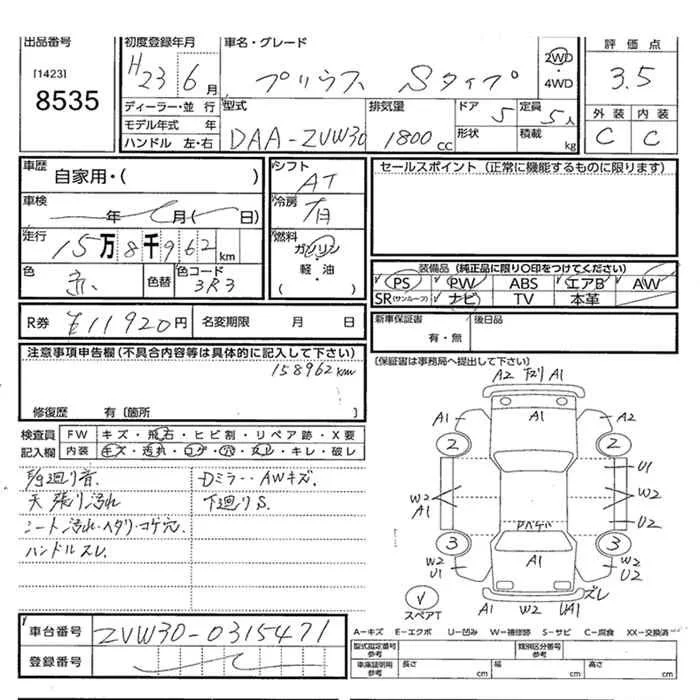 出品番号 初度登録年月 車名・グレード 評価点
[1423] H23 6月 プリウス Sタイプ 2WD・4WD 3.5
8535
ディーラー・並行 型式 排気量 ドア 5 定員 5人 外装 内装
モデル年式 年 DAA-ZVW30 1800cc 形状 積載 kg C C
ハンドル 左・右
車歴 自家用・( ) シフト AT セールスポイント (正常に機能するものに限ります)
車検 年 月( 日) 冷房 有
走行 15万8千962km 燃料 ガソリン・軽・油 ( )
装備品 (純正品に限り○印をつけてください)
色 赤 色替 色コード 3R3 PS PW ABS エアB AW
SR(サンルーフ) ナビ TV 本革
R券 ¥11920円 名変期限 月 日 新車保証書 有・無 後日品
注意事項申告欄(不具合内容等は具体的に記入して下さい) (保証書は事務局へ提出して下さい)
158962km
修復歴 有 〔箇所 〕
検査員 FW キズ・飛石・ヒビ割・リペア跡・X要
記入欄 内装 キズ・汚れ・コゲ・穴・スレ・キレ・破レ
廻り音. Dミラー・AWキズ.
天張り汚れ 下廻りS.
シート汚れ・ヘタリ・コゲ穴.
ハンドルスレ
A2 A1
A1 A1 A2
2 2
U1
W2 W2
A1 U2
3 3
W2 U1 A1 W2 U2
スペアT
ズレ
A1 W2 UA1
車台番号 ZVW30-0315471
登録番号
A-キズ E-エクボ U-凹み W-補修跡 S-サビ C-腐食 XX-交換済
型式指定番号 参考 類別区分番号 参考
車庫証明用 参考 長さ cm 幅 cm 高さ cm